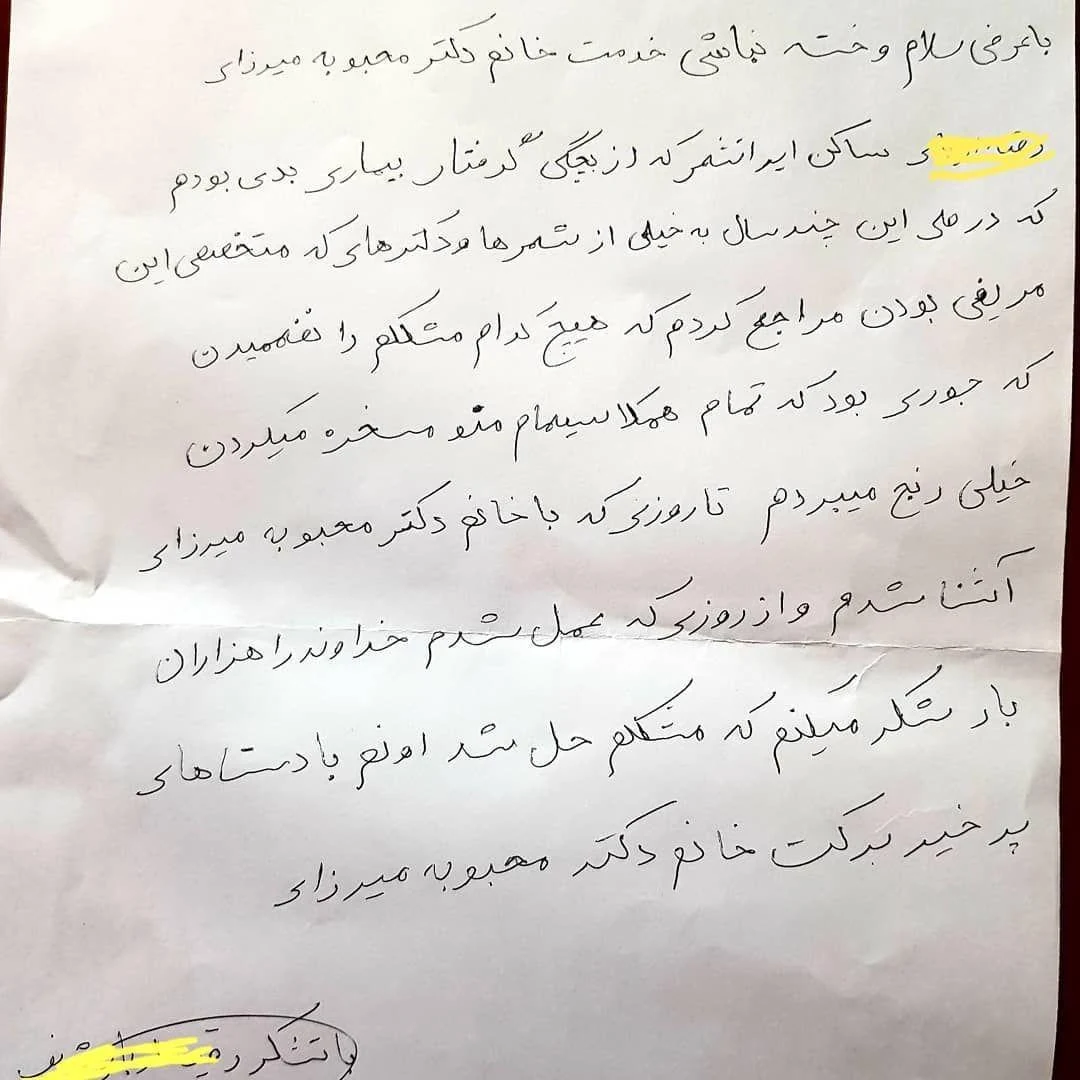 با عرض سلام و خسته نباشی خدمت خانم دکتر محبوبه میرزای
ساکن ایرانشهر که از بچگی گرفتار بیماری بدی بودم
که در طی این چند سال به خیلی از شهرها و دکترهای که متخصص این
مریضی بودن مراجع کردم که هیچ کدام مشکلم را نفهمیدن
که جوری بود که تمام همکلاسیهام منو مسخره میکردن
خیلی رنج میبردم تا روزی که با خانم دکتر محبوبه میرزای
آشنا شدم و از روزی که عمل شدم خداوند را هزاران
بار شکر میکنم که مشکلم حل شد اونم با دستاهای
پر خیر برکت خانم دکتر محبوبه میرزای
با تشکر